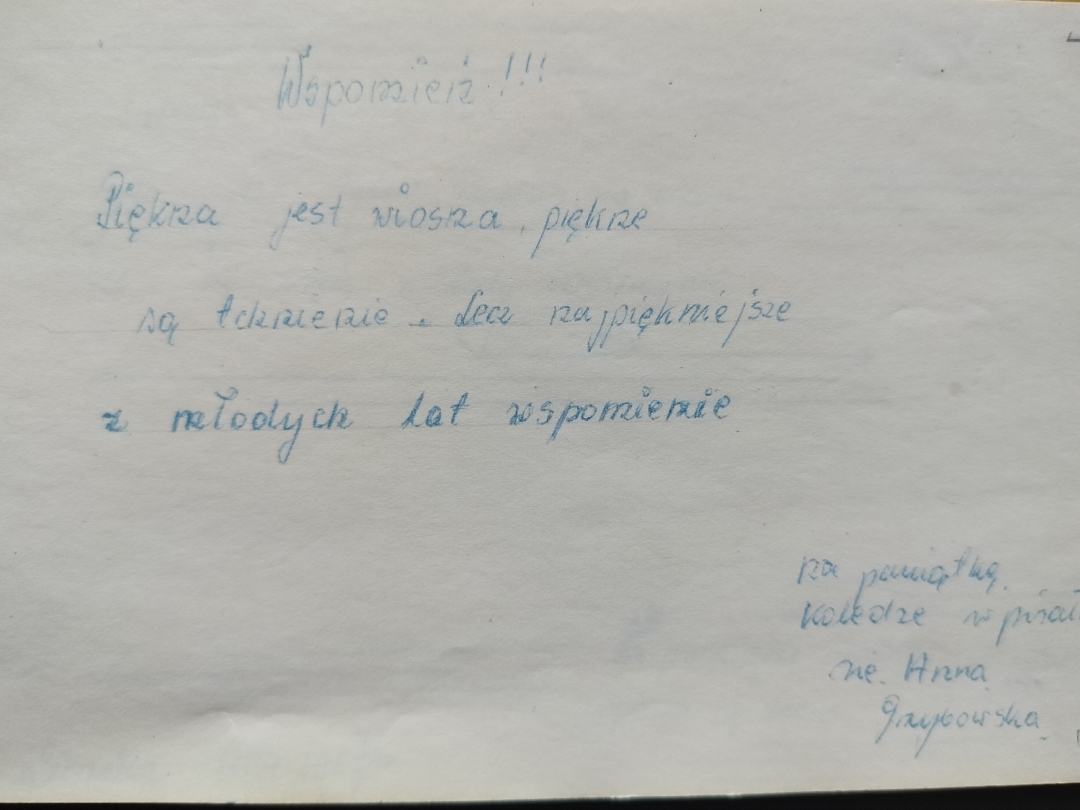 Wspomnień !!!
Piękna jest wiosna, piękne
są tchnienie. Lecz najpiękniejsze
z młodych lat wspomienie
na pamiątkę.
Koledze wpisał
się. Anna
Grzybowska.